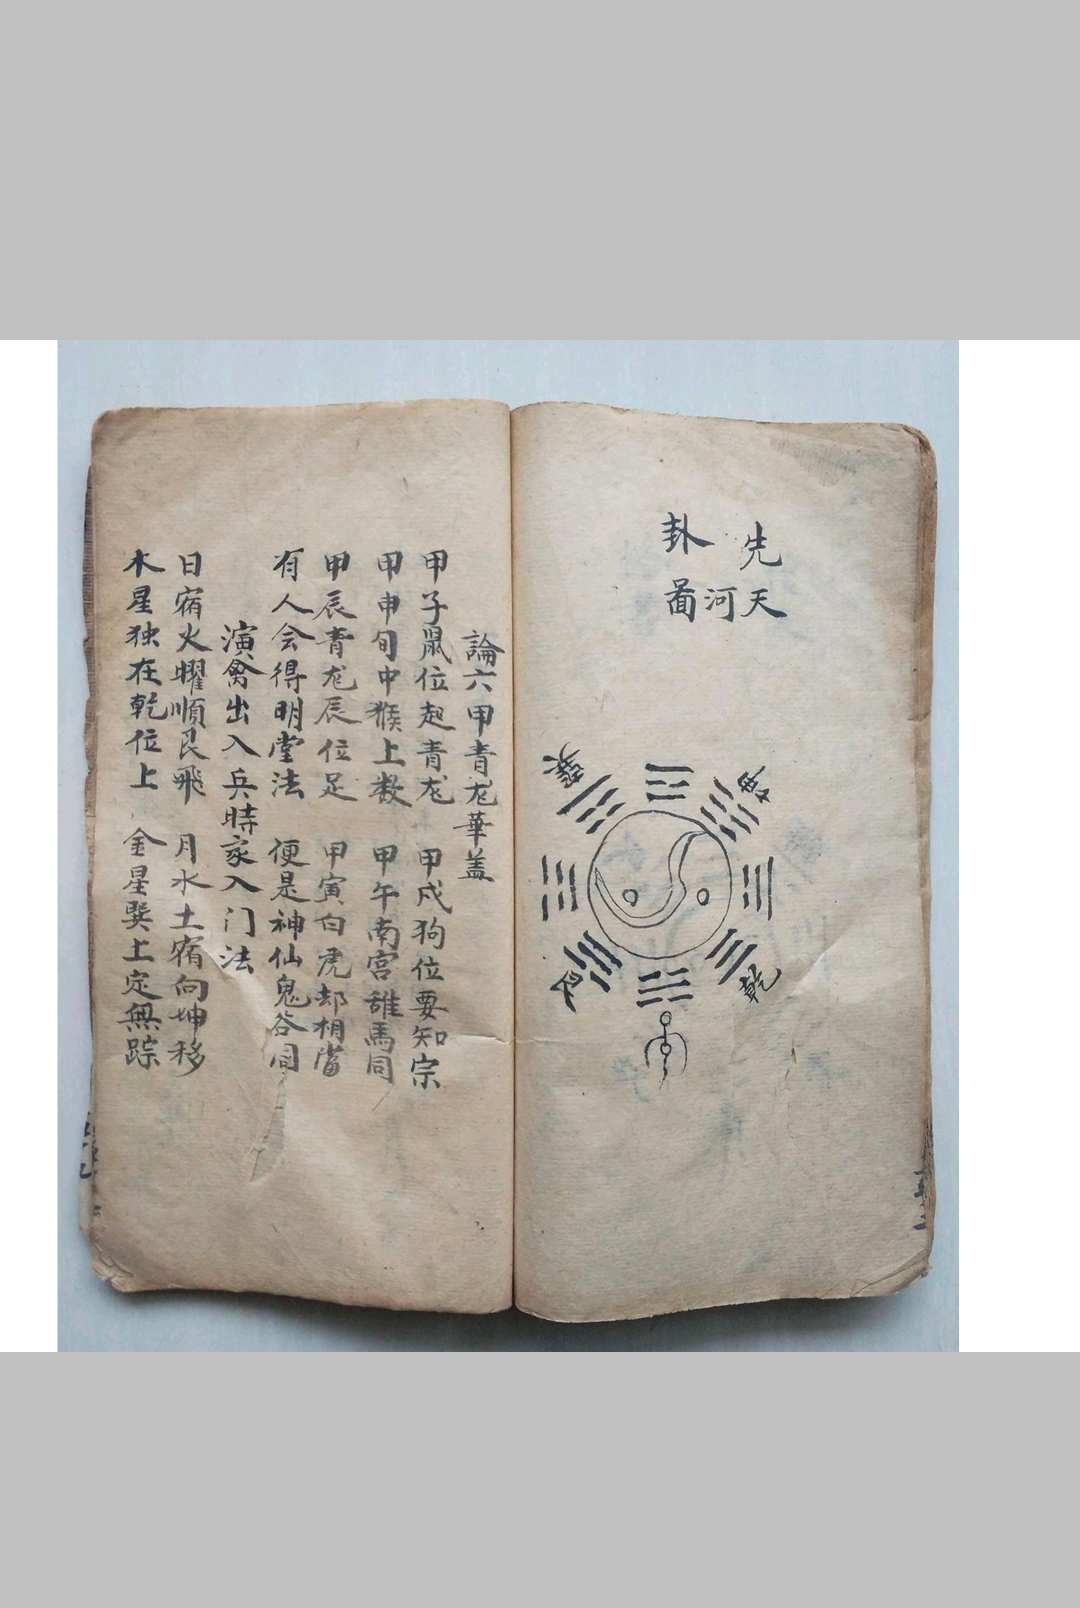 先天河
卦畵
坤
巽
艮
乾
論六甲青龙華盖
甲子鼠位起青龙 甲戍狗位要知宗
甲申旬中猴上数 甲午南宫離馬同
甲辰青龙辰位足 甲寅白虎却相當
有人会得明堂法 便是神仙鬼谷同
演禽出入兵時家入门法
日宿火曜順艮飛 月水土宿向坤移
木星独在乾位上 金星巽上定無踪